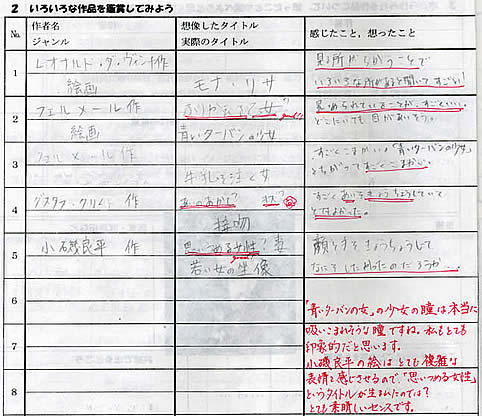 2 いろいろな作品を鑑賞してみよう
№ 作者名 ジャンル 想像したタイトル 実際のタイトル 感じたこと，想ったこと
1 レオナルド・ダ・ヴィンチ作
絵画 モナ・リサ
見る所がちがうことで
いろいろな所があると聞いてすごい!
2 フェルメール 作 ふりかえる女
絵画 青いターバンの少女
見つめられていることが、すごくいい。
どこにいても目があいそう。
3 フェルメール 作
牛乳を注ぐ女
すごくこまかい。「青いターバンの少女」
とちがってすごくこまかい。
4 グスタフ・クリムト 作 あいのあかし?
接吻
すごくあいをきょうちょうしていて
とてもよかった。
5 小磯良平 作 思いつめる女性? 妻
若い女の坐像
顔とすそをきょうちょうして
なにをしたかったのだろうか…
6
7
8
「青いターバンの女」の少女の瞳は本当に
吸いこまれそうな瞳ですね。私もとても
印象的だと思います。
小磯良平の絵はとても複雑な
表情を感じさせるので、「思いつめる女性」
というタイトルが生まれたのでは?
とても素晴しいセンスです。